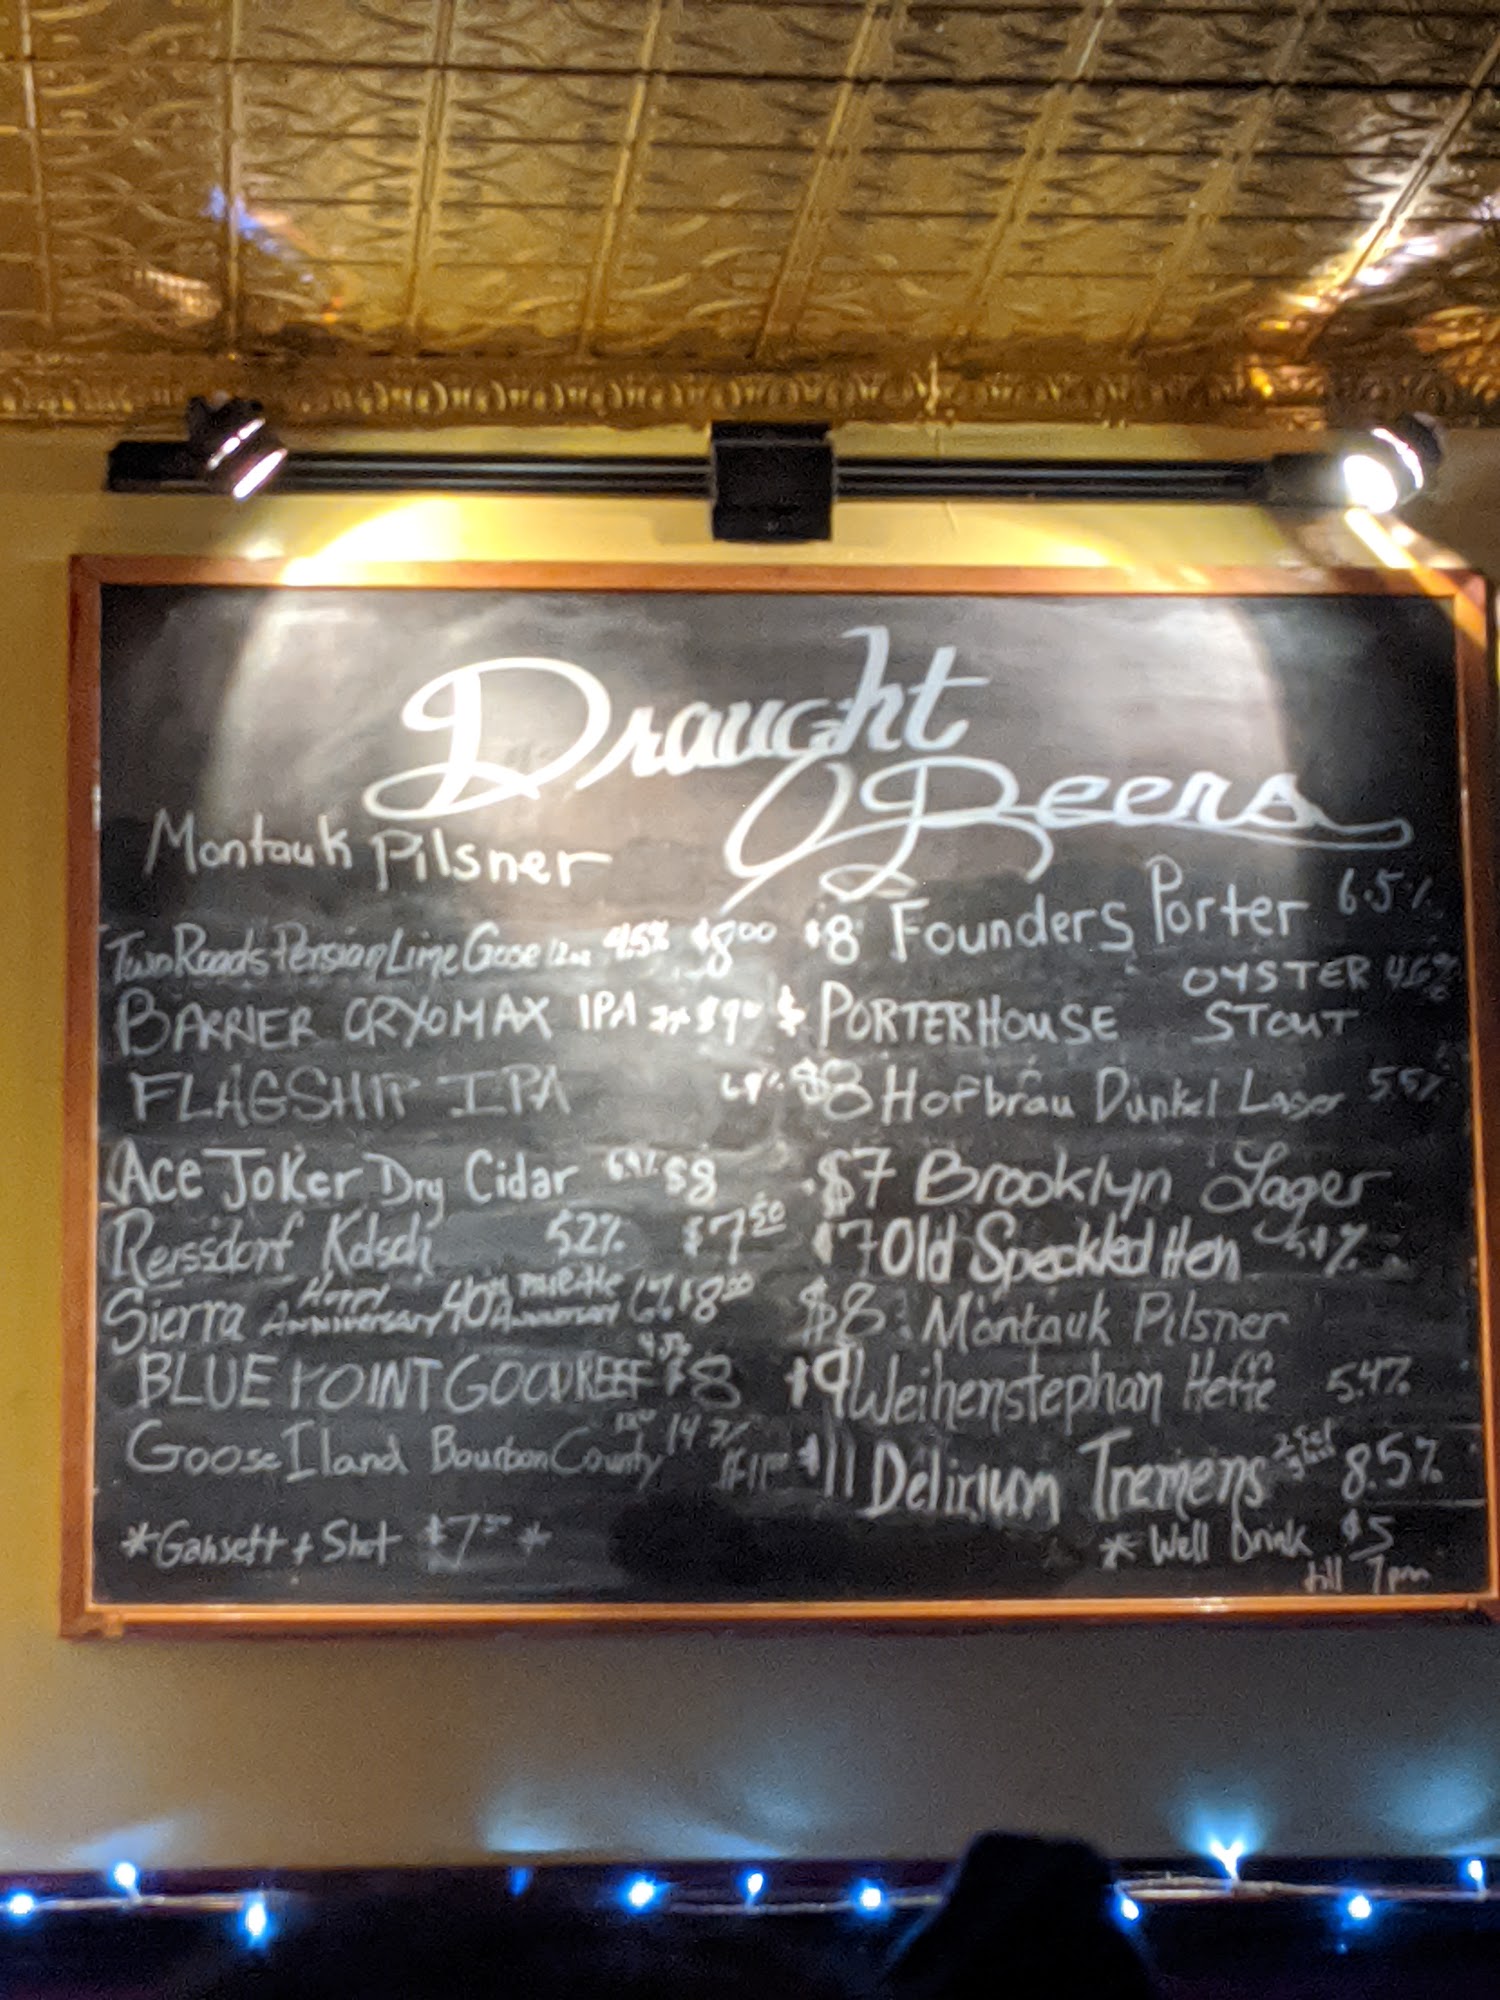 Draught
Beers
Montauk Pilsner
Two Roads Persian Lime Gose 12oz 4.5% $8.00
BARRIER CRYOMAX IPA $9
FLAGSHIP IPA
Ace Joker Dry Cidar 6.9% $8
Reissdorf Kolsch 5.2% $7.50
Sierra Happy Anniversary 40th Anniversary 6% $8
BLUE POINT GOOD REEF $8
Goose Iland Bourbon County 14.7%
*Gansett + Shot $7 *
$8 Founders Porter 6.5%
PORTERHOUSE OYSTER STOUT 4.6%
$8 Hofbrau Dunkel Lager 5.5%
$7 Brooklyn Lager
$7 Old Speckled Hen
$8 Montauk Pilsner
$9 Weihenstephan Heffe 5.4%
$11 Delirium Tremens 8.5%
* Well Drink $5
till 7pm